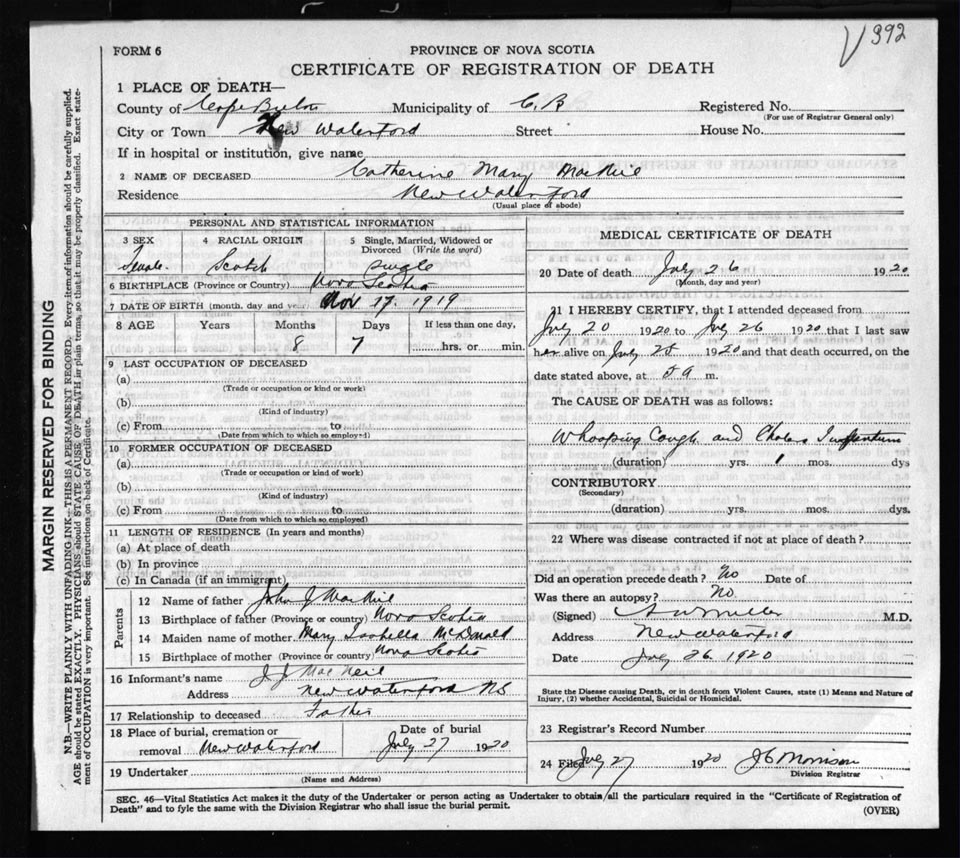 V 392
FORM 6
PROVINCE OF NOVA SCOTIA
CERTIFICATE OF REGISTRATION OF DEATH
1 PLACE OF DEATH—
County of Cape Breton Municipality of C. B Registered No.
(For use of Registrar General only)
City or Town New Waterford Street House No.
If in hospital or institution, give name
2 NAME OF DECEASED Catherine Mary MacNeil
Residence New Waterford
(Usual place of abode)
PERSONAL AND STATISTICAL INFORMATION
3 SEX 4 RACIAL ORIGIN 5 Single, Married, Widowed or
Divorced (Write the word)
Female Scotch Single
6 BIRTHPLACE (Province or Country) Nova Scotia
7 DATE OF BIRTH (month, day and year) Nov 17. 1919
8 AGE Years Months Days If less than one day,
8 7 hrs. or min.
9 LAST OCCUPATION OF DECEASED
(a)
(Trade or occupation or kind of work)
(b)
(Kind of industry)
(c) From to
(Date from which to which so employed)
10 FORMER OCCUPATION OF DECEASED
(a)
(Trade or occupation or kind of work)
(b)
(Kind of industry)
(c) From to
(Date from which to which so employed)
11 LENGTH OF RESIDENCE (In years and months)
(a) At place of death
(b) In province
(c) In Canada (if an immigrant)
Parents
12 Name of father John J MacNeil
13 Birthplace of father (Province or country) Nova Scotia
14 Maiden name of mother Mary Isabella McDonald
15 Birthplace of mother (Province or country) Nova Scotia
16 Informant's name J. J. MacNeil
Address New Waterford NS
17 Relationship to deceased Father
18 Place of burial, cremation or Date of burial
removal New Waterford July 27 1920
19 Undertaker
(Name and Address)
MEDICAL CERTIFICATE OF DEATH
20 Date of death July 26 1920
(Month, day and year)
21 I HEREBY CERTIFY, that I attended deceased from
July 20 1920 to July 26 1920 that I last saw
her alive on July 25 1920 and that death occurred, on the
date stated above, at 5 a m.
The CAUSE OF DEATH was as follows:
Whooping Cough and Cholera Infantum
(duration) yrs. 1 mos. dys
CONTRIBUTORY
(Secondary)
(duration) yrs. mos. dys.
22 Where was disease contracted if not at place of death?
Did an operation precede death? No Date of
Was there an autopsy? No
(Signed) Miller M.D.
Address New Waterford
Date July 26 1920
State the Disease causing Death, or in death from Violent Causes, state (1) Means and Nature of
Injury, (2) whether Accidental, Suicidal or Homicidal.
23 Registrar's Record Number
24 Filed July 27 1920 J C Morrison
Division Registrar
SEC. 46—Vital Statistics Act makes it the duty of the Undertaker or person acting as Undertaker to obtain all the particulars required in the "Certificate of Registration of
Death" and to fyle the same with the Division Registrar who shall issue the burial permit.
(OVER)
MARGIN RESERVED FOR BINDING
N.B.—WRITE PLAINLY WITH UNFADING INK—THIS IS A PERMANENT RECORD. Every item of information should be carefully supplied.
AGE should be stated EXACTLY. PHYSICIANS should STATE CAUSE OF DEATH in plain terms, so that it may be properly classified. Exact state-
ment of OCCUPATION is very important. See instructions on back of Certificate.